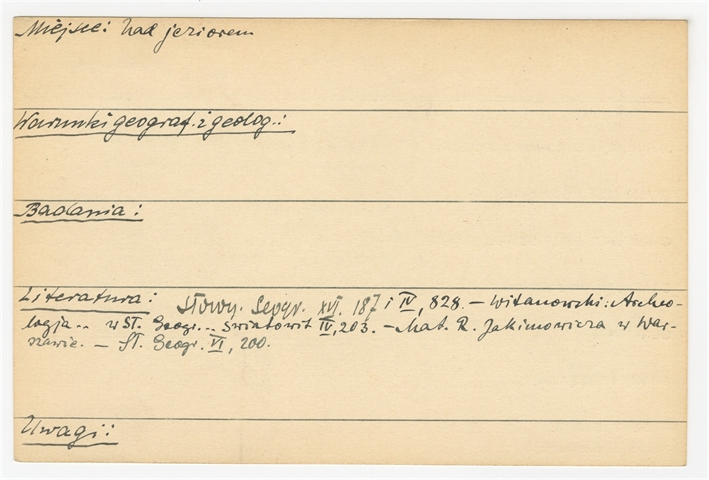 Miejsce: Nad jeziorem
Warunki geograf. i geolog.:
Badania:
Literatura: Słown. Geogr. XVI. 187 i IV, 828. – Witanowski: Archeo-
logja.. w Sł. Geogr... Światowit IV, 203. – Mat. R. Jakimowicza w War-
szawie. – Sł. Geogr. VI, 200.
Uwagi: